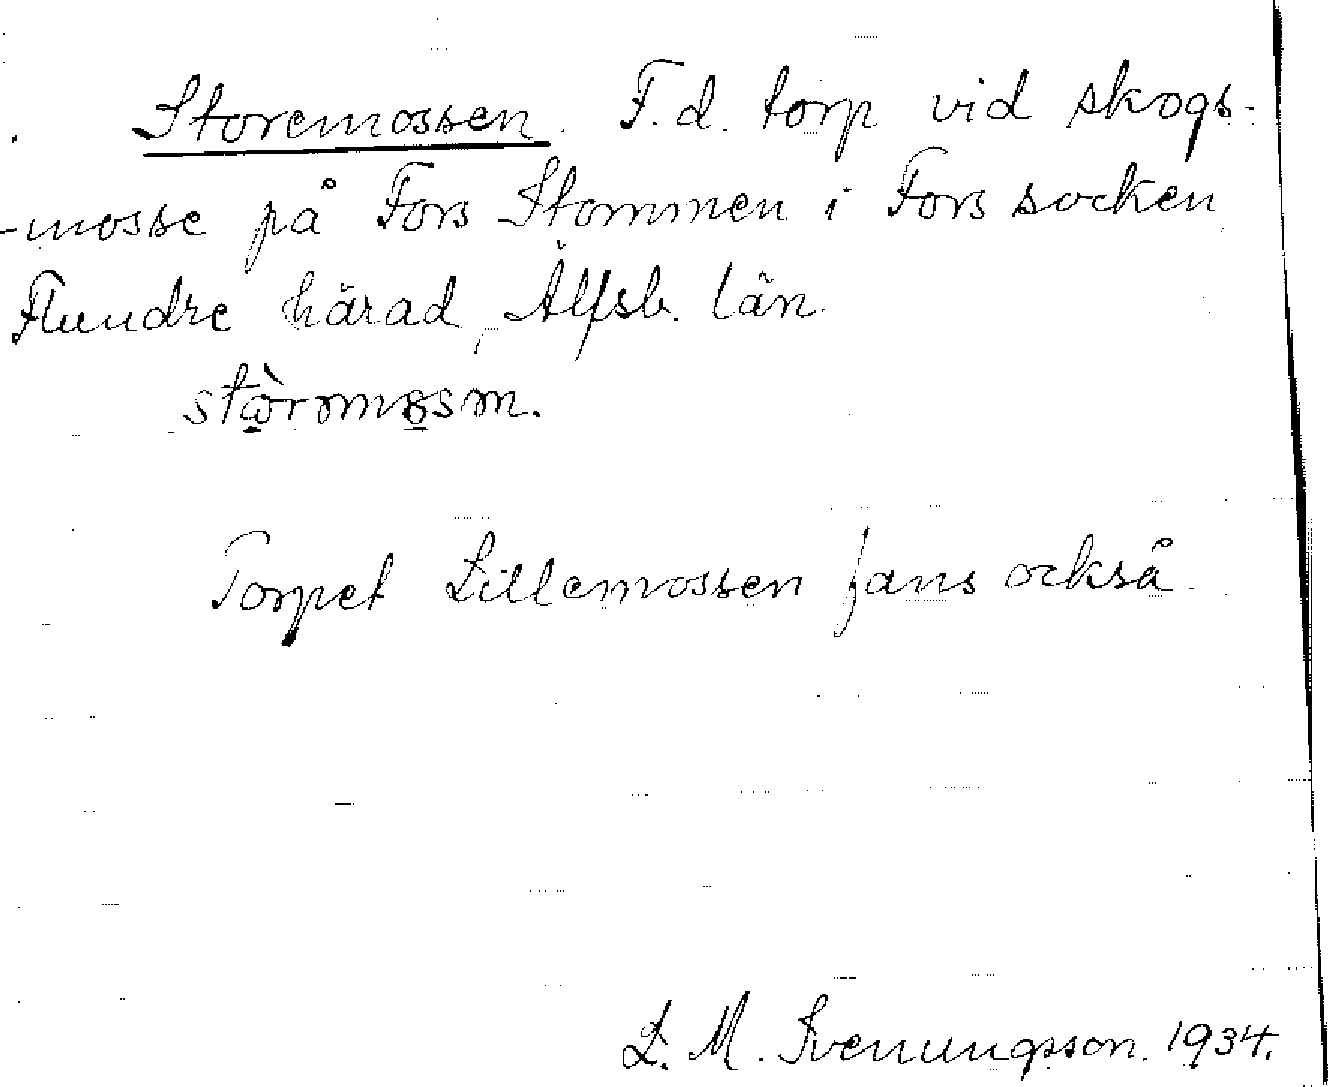 Storemossen. F.d. torp vid skogs-
-mosse på Fors Stommen i Fors socken
Flundre härad, Älfsb. län.
Torpet Lillemossen fans också.
L. M. Svenungsson. 1934.